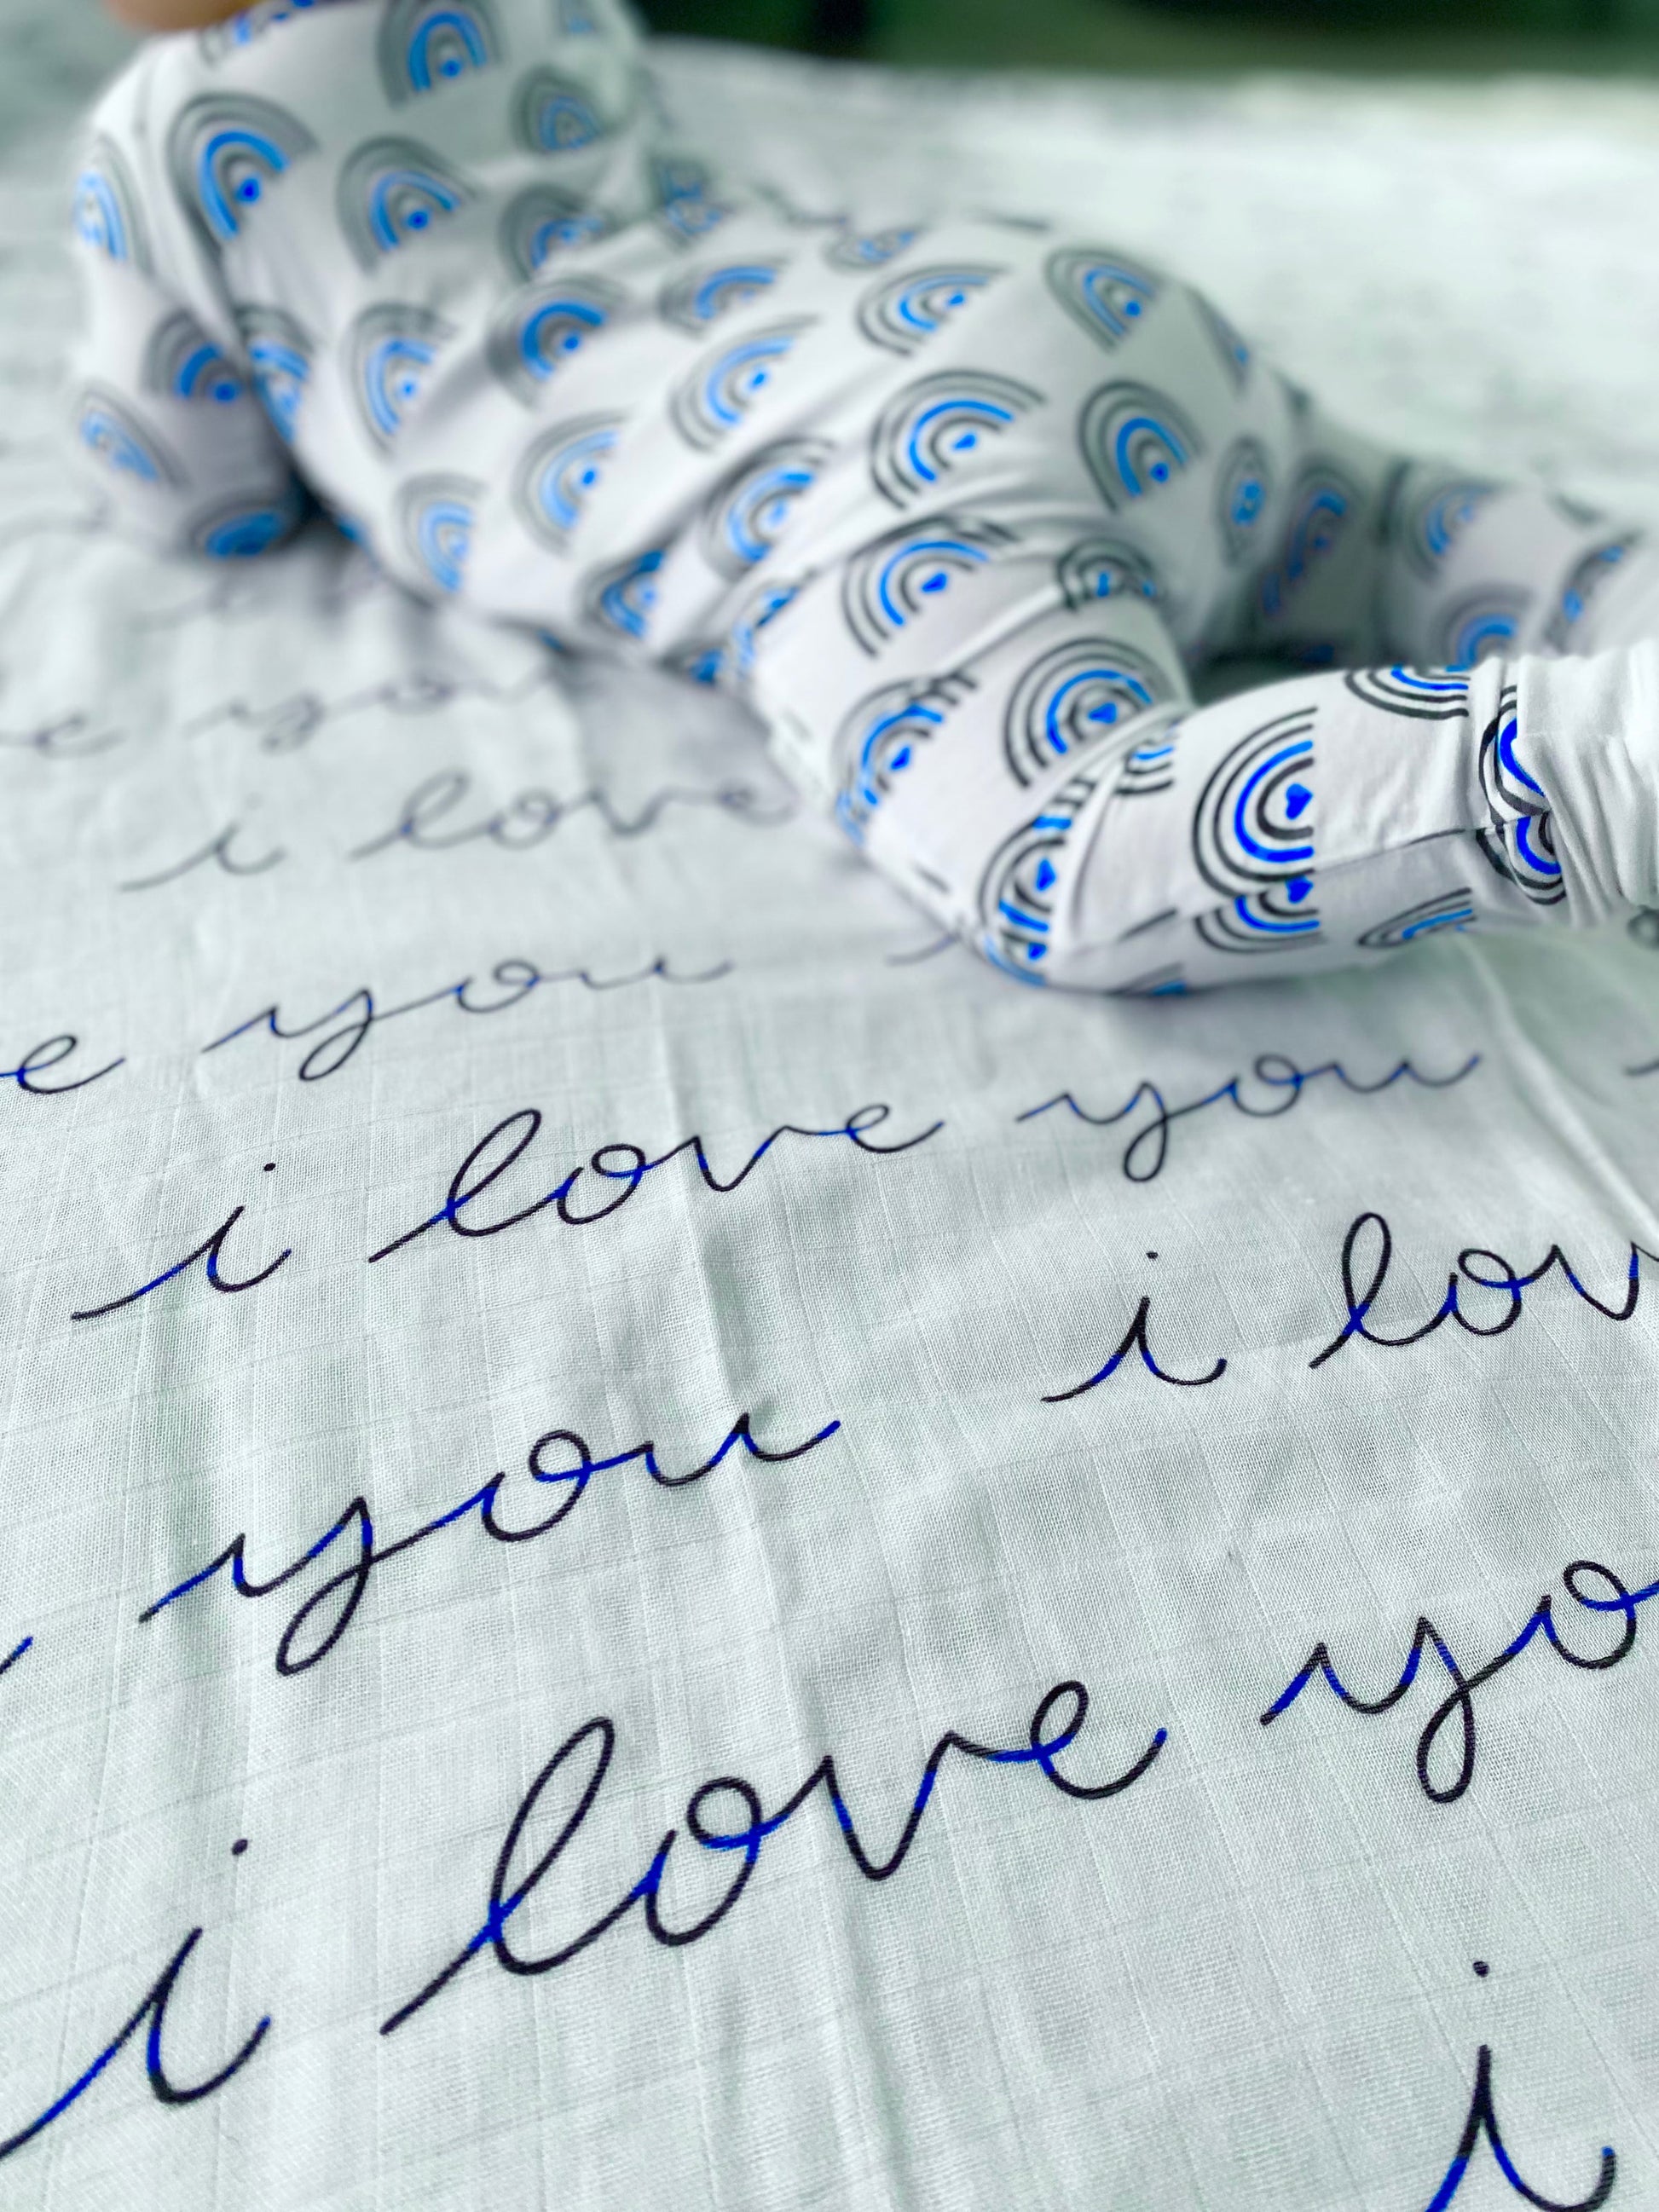 you
i love
you
i love you
i lov
you
i love yo
i